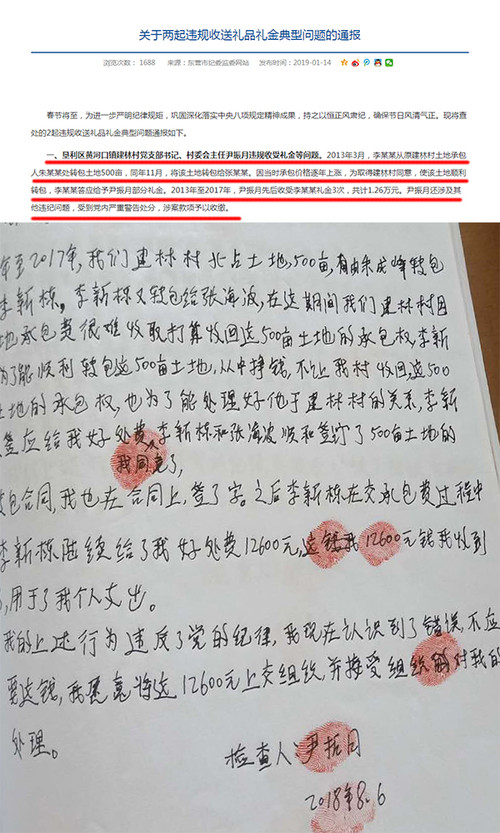 关于两起违规收送礼品礼金典型问题的通报
浏览次数： 1688 来源：东营市纪委监委网站 发布时间：2019-01-14
春节将至，为进一步严明纪律规矩，巩固深化落实中央八项规定精神成果，持之以恒正风肃纪，确保节日风清气正。现将查
处的2起违规收送礼品礼金典型问题通报如下。
一、垦利区黄河口镇建林村党支部书记、村委会主任尹振月违规收受礼金等问题。2013年3月，李某某从原建林村土地承包
人朱某某处转包土地500亩，同年11月，将该土地转包给张某某。因当时承包价格逐年上涨，为取得建林村同意，使该土地顺利
转包，李某某答应给予尹振月部分礼金。2013年至2017年，尹振月先后收受李某某礼金3次，共计1.26万元。尹振月还涉及其
他违纪问题，受到党内严重警告处分，涉案款项予以收缴。
年至2017年，我们建林村北占土地，500亩，有由朱成峰转包
李新栋，李新栋又转包给张海波，在这期间我们建林村因
地承包费很难收取打算收回这500亩土地的承包权，李新
为了能顺利转包这500亩土地，从中挣钱，不让我村收回这500
土地的承包权，也为了能处理好他于建林村的关系，李新
答应给我好处费，李新栋和张海波顺利签订了500亩土地的
我同意了，
包合同，我也在合同上，签了字。之后李新栋在交承包费过程中
李新栋陆续给了我好处费12600元，这钱我12600元钱我收到
，用于了我个人支出。
我的上述行为违反了党的纪律，我现在认识到了错误，不应
要这钱，我愿意将这12600元上交组织，并接受组织的对我的
处理。
检查人：尹振月
2018年8.6